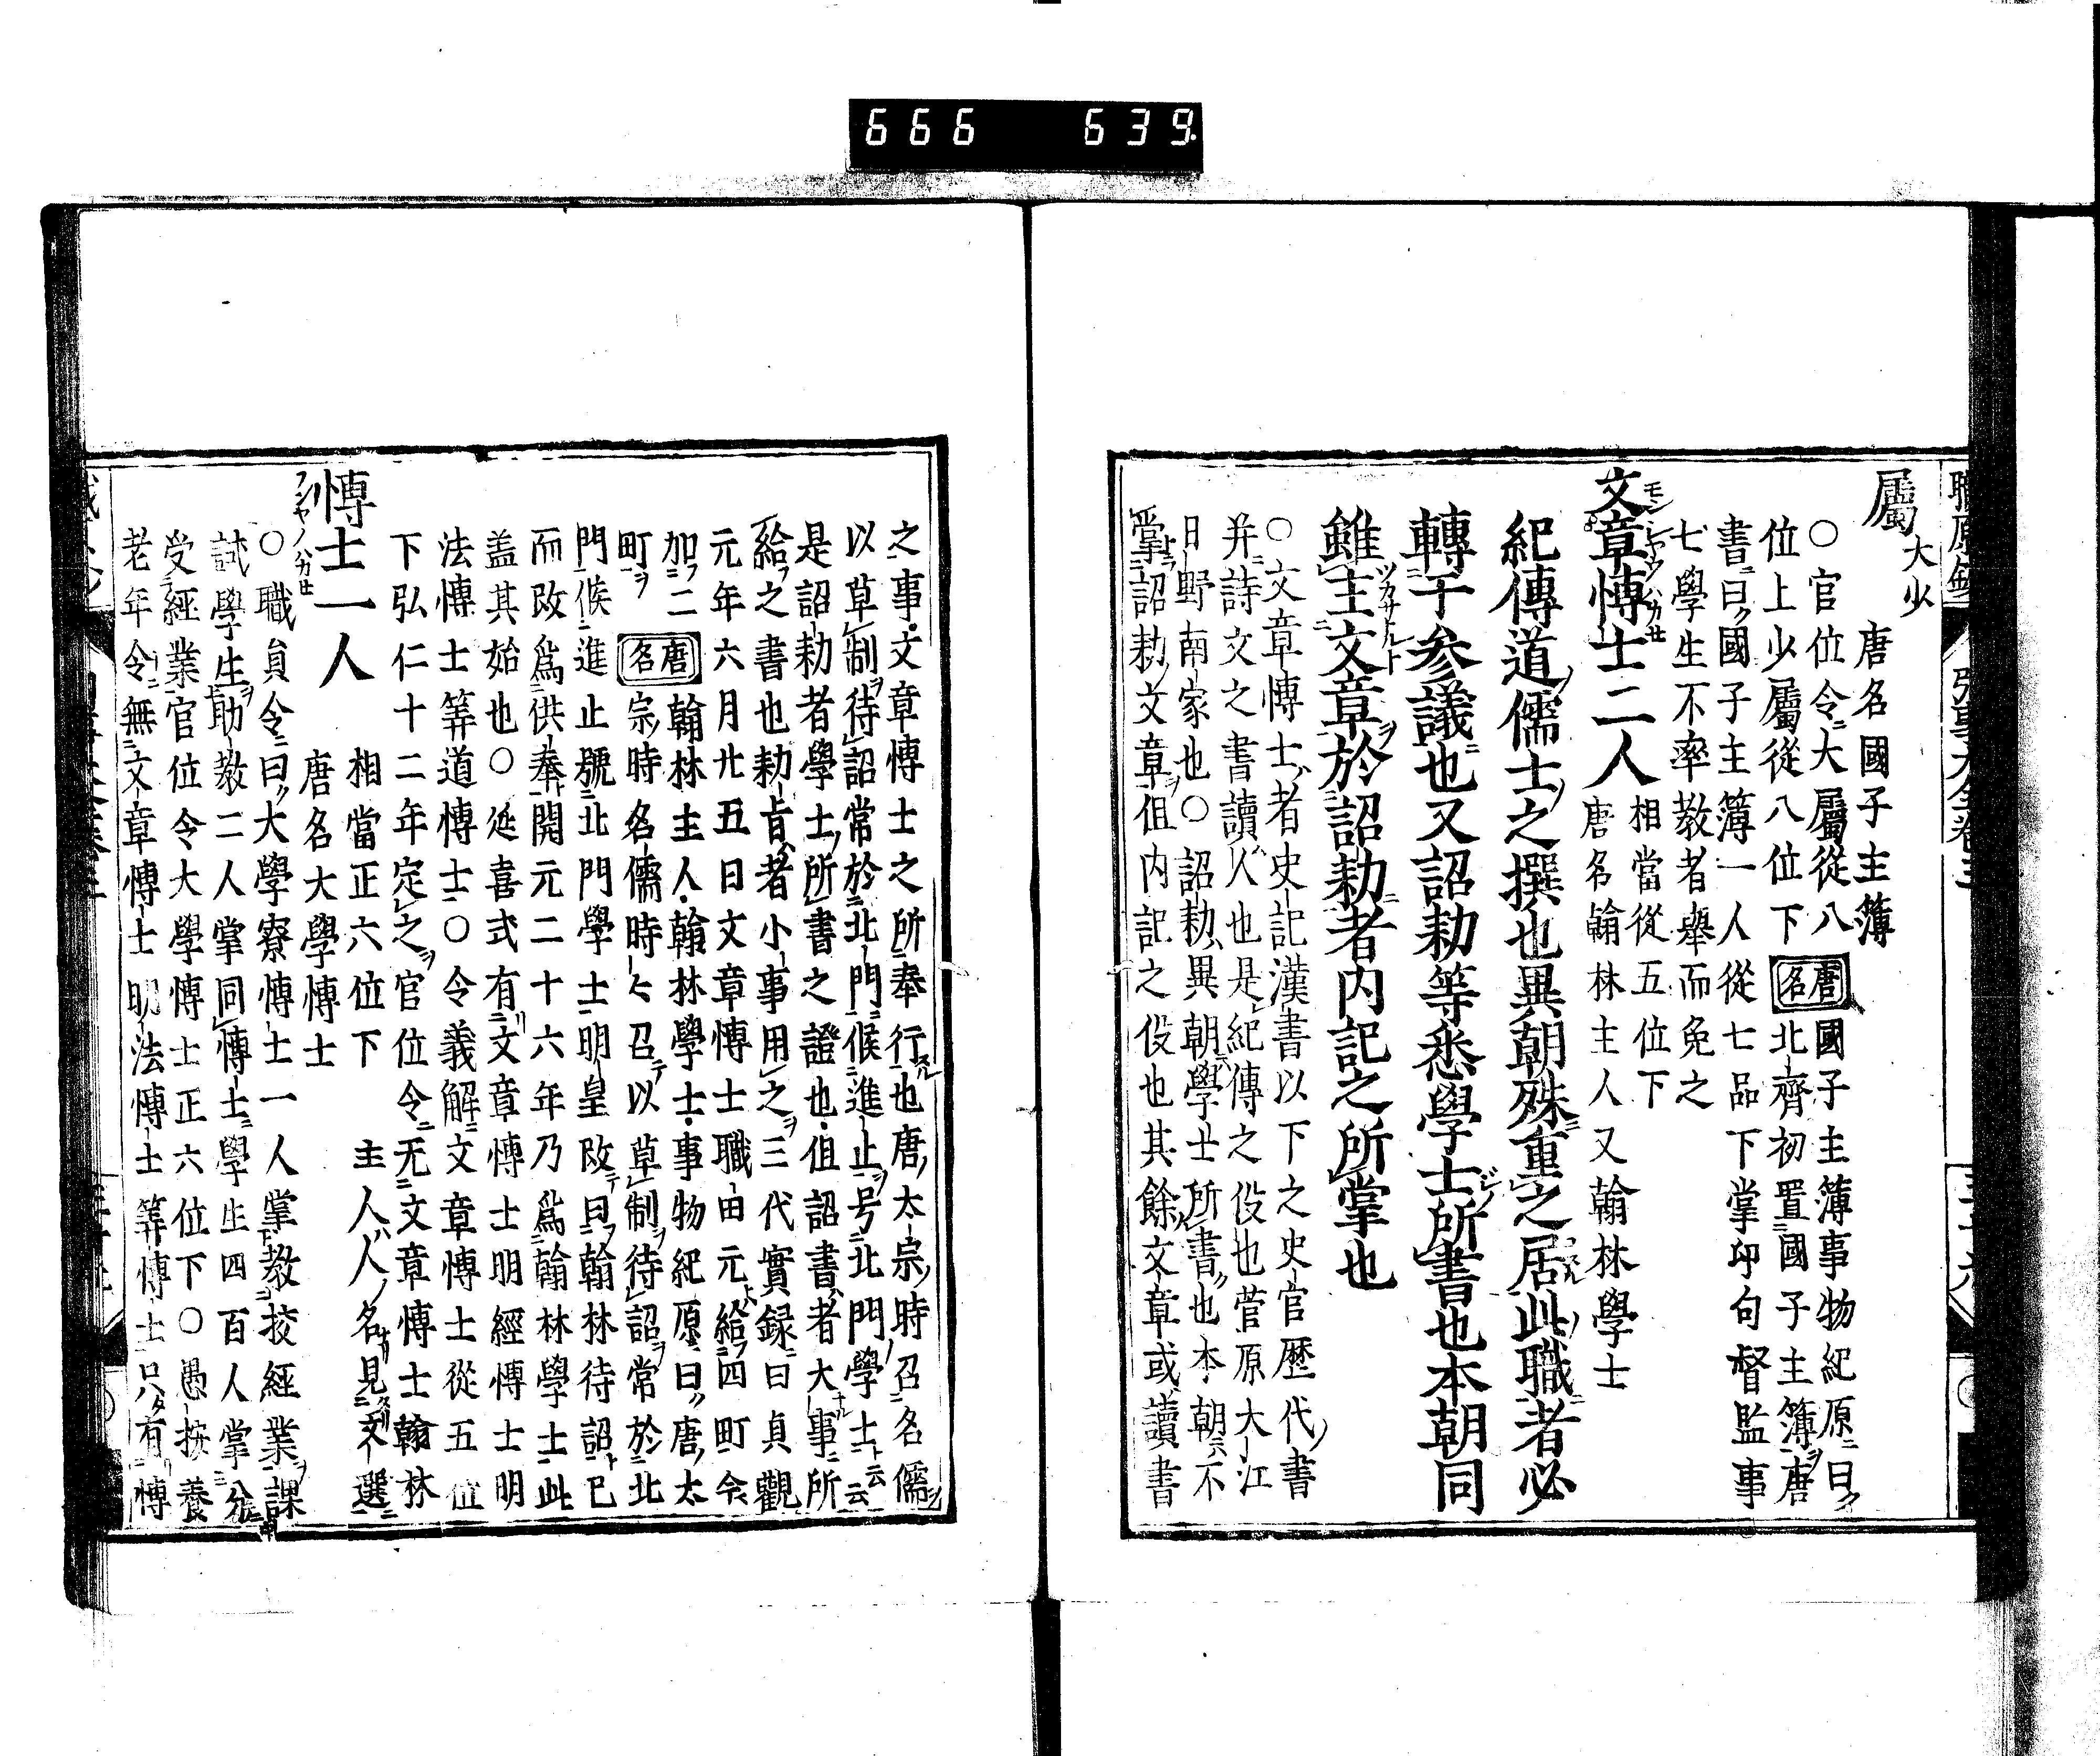 666 639.
屬 大少
唐名國子主簿
○官位令大屬從八
位上少屬從八位下
唐名 國子主薄事物紀原曰
北齊初置國子主簿唐
書曰國子主簿一人從七品下掌印句督監事
七學生不率教者舉而免之
文章愽士二人 相當從五位下
唐名翰林主人又翰林學士
紀傳道儒士之撰也異朝殊重之居此職者必
轉于参議也又詔勅等悉學士所書也本朝同
雖主文章於詔勅者内記之所掌也
○文章愽士者史記漢書以下之史官歷代書
并詩文之書讀人也是紀傳之役也菅原大江
日野南家也○詔勅異朝學士所書也本朝不
掌詔勅文章但内記之役也其餘文章或讀書
之事文章愽士之所奉行也唐太宗時召名儒
以草制待詔常於北門候進止号北門學士云云
是詔勅者學士所書之證也但詔書者大事所
給之書也勅旨者小事用之三代實録曰貞觀
元年六月廿五日文章愽士職田元給四町今
加二町 唐名 翰林主人翰林學士事物紀原曰唐太
宗時名儒時々召以草制待詔常於北
門候進止號北門學士明皇改曰翰林待詔已
而改爲供奉開元二十六年乃爲翰林學士此
盖其始也○延喜式有文章愽士明經愽士明
法愽士筭道愽士○令義解文章愽士從五位
下弘仁十二年定之官位令无文章愽士翰林
主人人名見文選
愽士一人 相當正六位下
唐名大學愽士
○職員令曰大學寮愽士一人掌教授經業課
試學生助教二人掌同愽士學生四百人掌分
受經業官位令大學愽士正六位下○愚按養
老年令無文章愽士明法愽士筭愽士只有愽